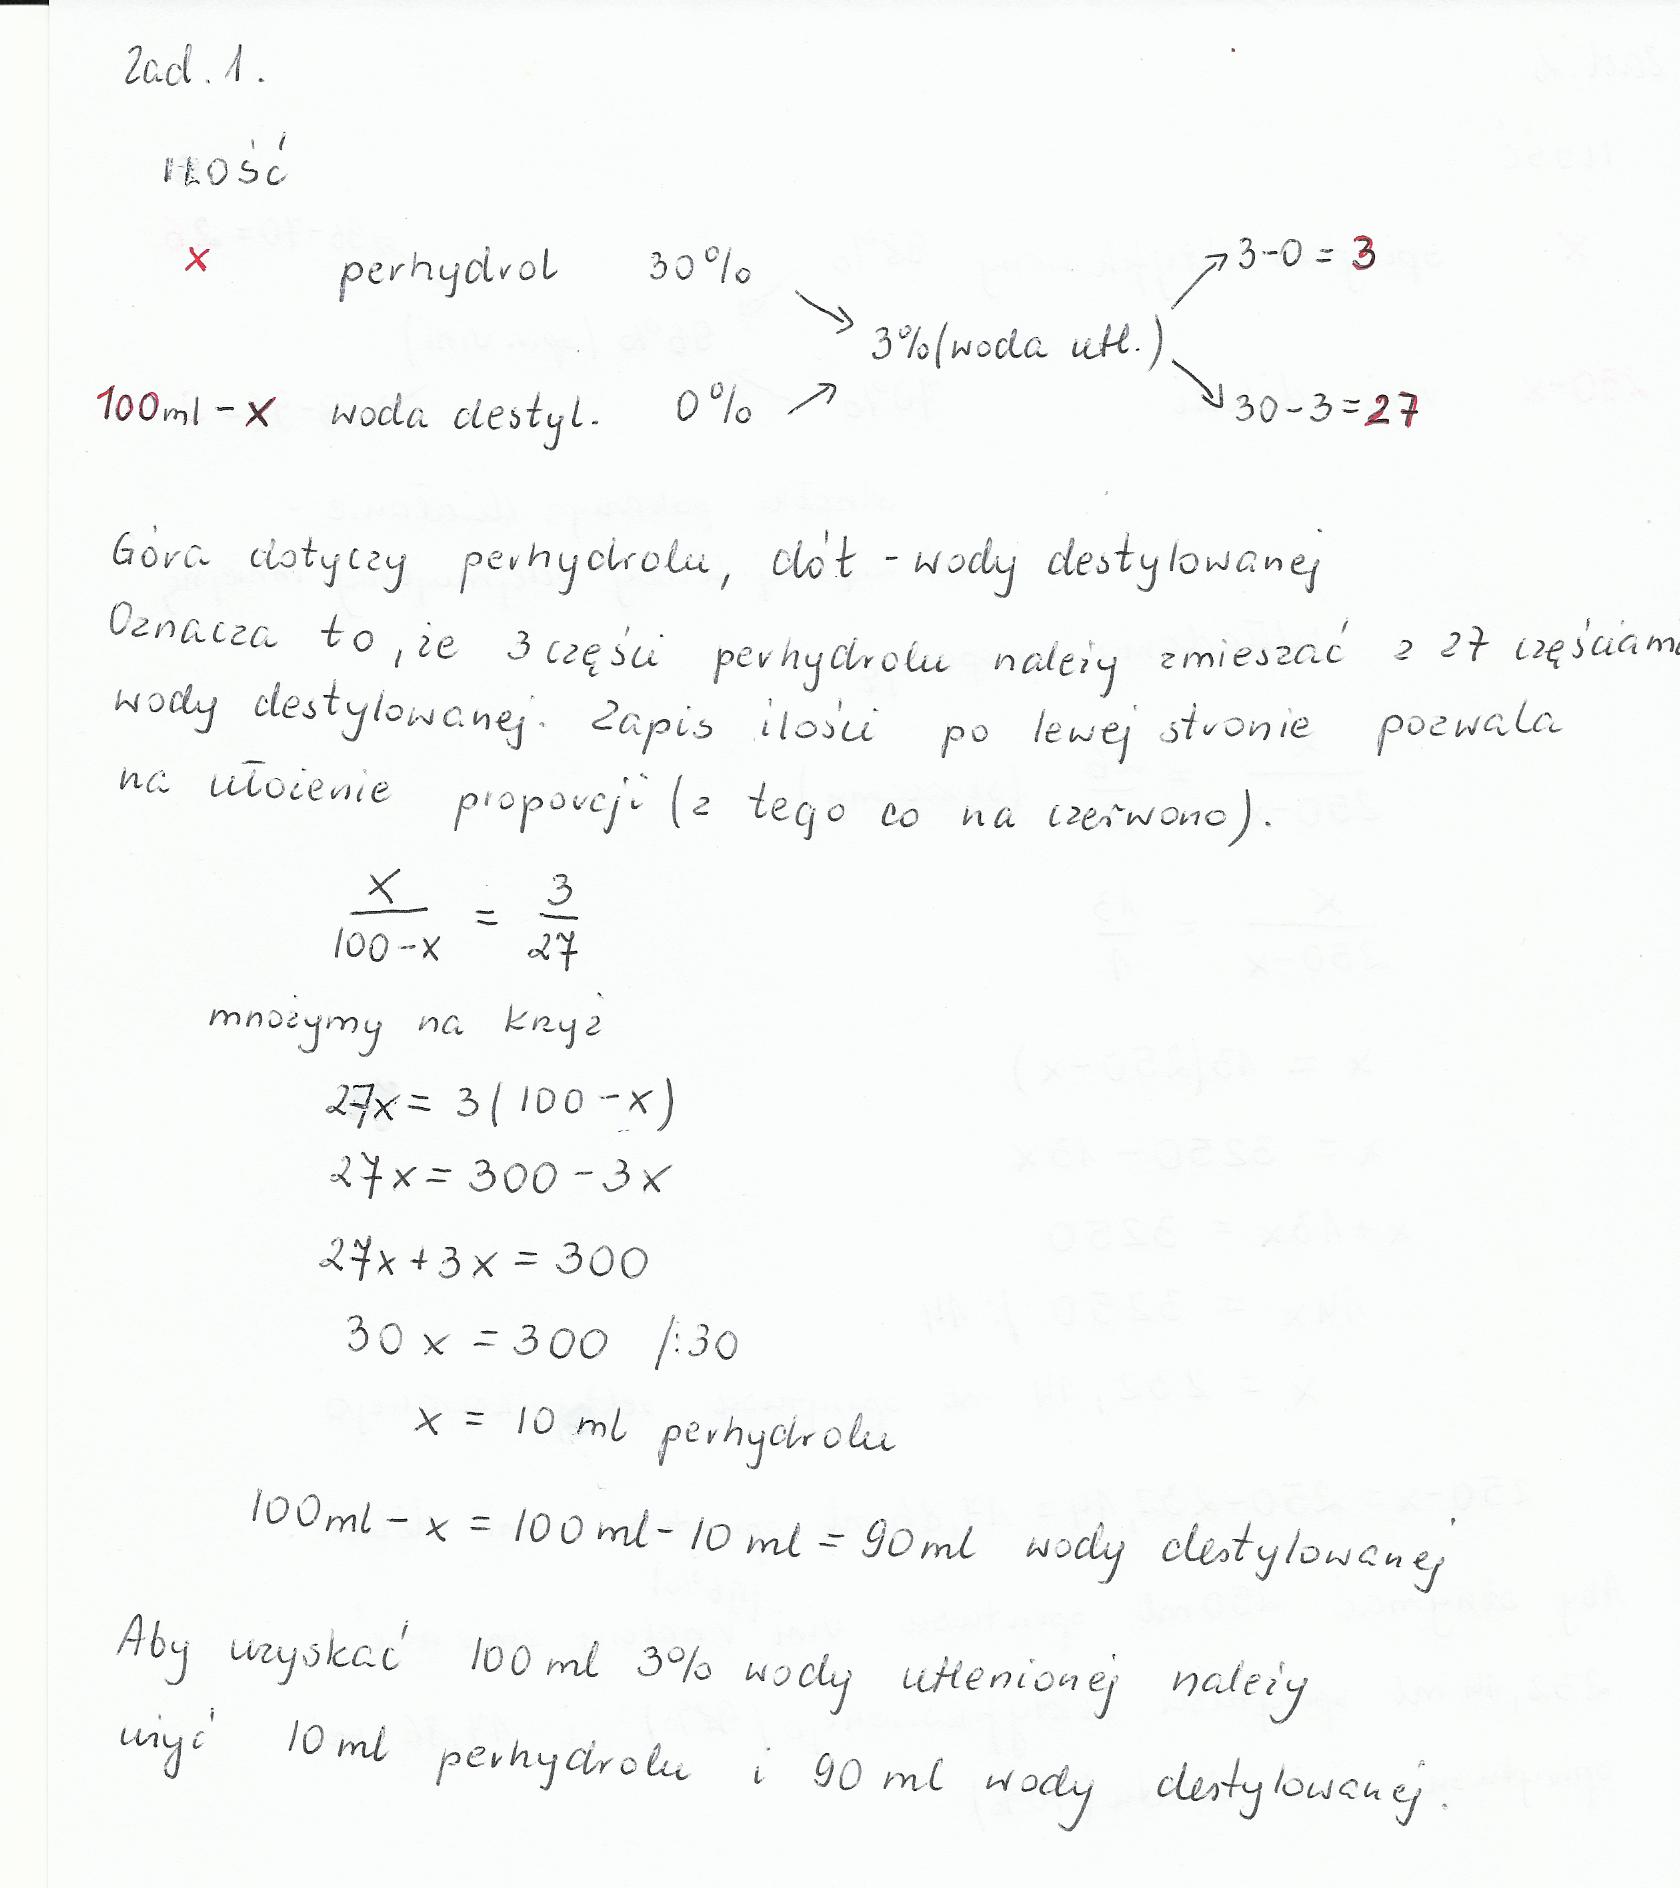 Zad. 1.
ILOŚĆ
x perhydrol 30% 3-0 = 3
3% (woda utl.)
100ml - x woda destyl. 0% 30-3=27
Góra dotyczy perhydrolu, dół - wody destylowanej
Oznacza to, że 3 części perhydrolu należy zmieszać z 27 częściami
wody destylowanej. Zapis ilości po lewej stronie pozwala
na ułożenie proporcji (z tego co na czerwono).
x/100-x = 3/27
mnożymy na krzyż
27x = 3(100-x)
27x = 300 - 3x
27x + 3x = 300
30x = 300 /:30
x = 10 ml perhydrolu
100ml - x = 100ml - 10 ml = 90ml wody destylowanej
Aby uzyskać 100 ml 3% wody utlenionej należy
użyć 10 ml perhydrolu i 90 ml wody destylowanej.